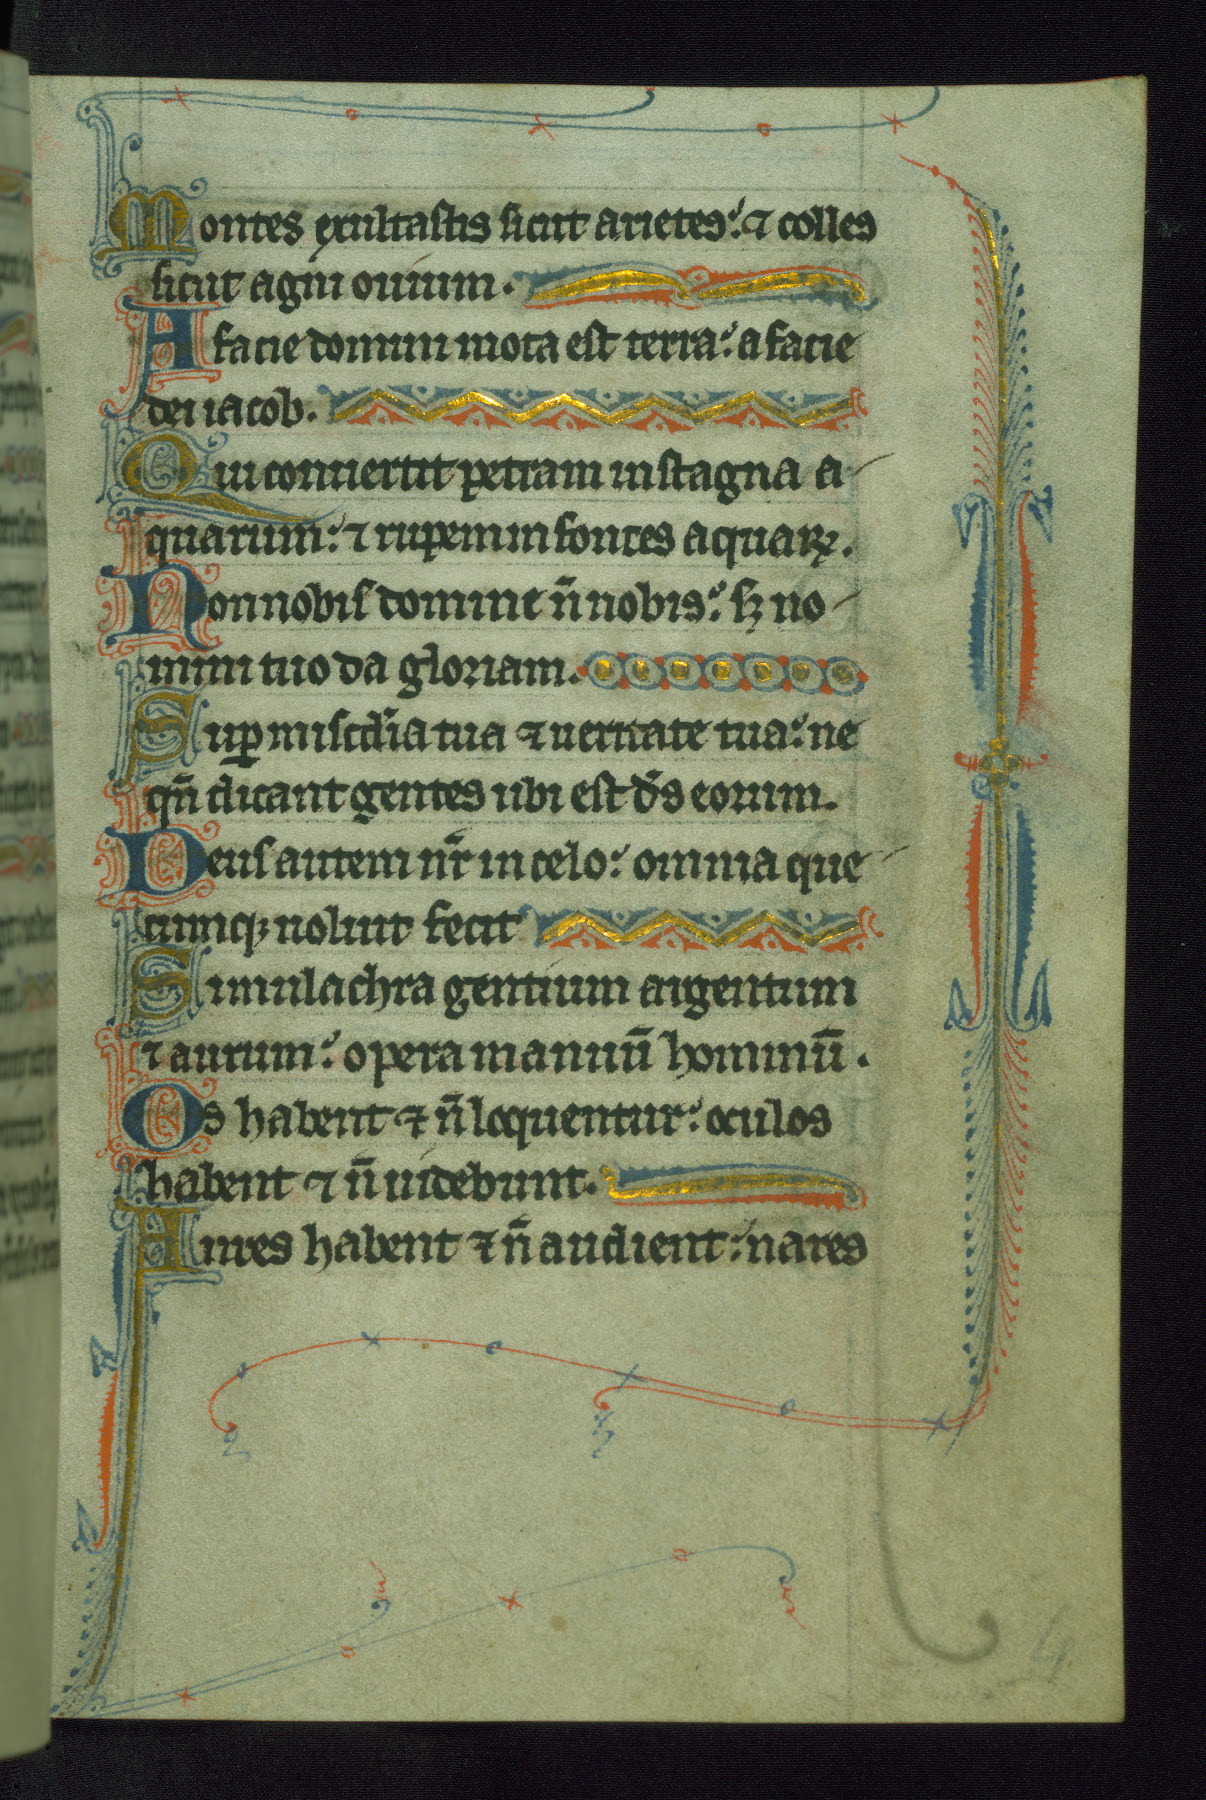 Montes exultastis sicut arietes: ⁊ colles
sicut agni ouium.
A facie domini mota est terra: a facie
dei iacob.
Qui conuertit petram in stagna a
quarum: ⁊ rupem in fontes aquaꝝ.
Non nobis domine n̄ nobis: sꝫ no
mini tuo da gloriam.
Suꝑ misc̄dia tua ⁊ ueritate tua: ne
qn̄ dicant gentes ubi est d̄s eorum.
Deus autem nr̄ in celo: omnia que
cumqꝫ uoluit fecit
Simulachra gentium argentum
⁊ aurum: opera manuū hominū.
Os habent ⁊ n̄ loquentur: oculos
habent ⁊ n̄ uidebunt.
Aures habent ⁊ n̄ audient: nares